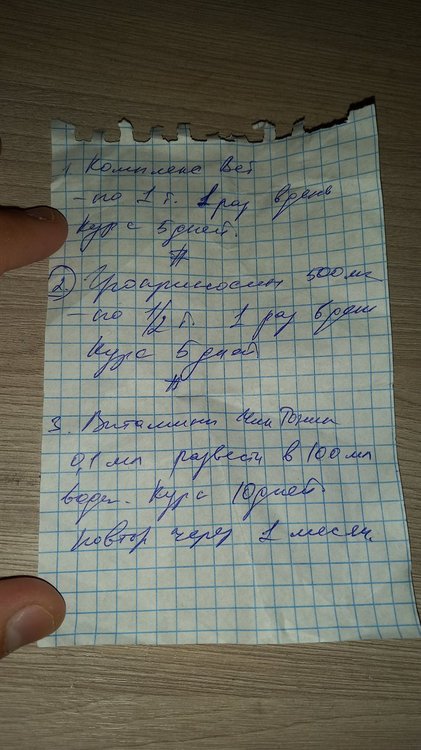 1. Комплекс Вет
- по 1 т. 1 раз в день
Курс 5 дней.
2. Гроприносин 500 мг
- по 1/2 т. 1 раз в день
Курс 5 дней
3. Витамины Чиктоник
0,1 мл развести в 100 мл
воды. Курс 10 дней
повтор через 1 месяц